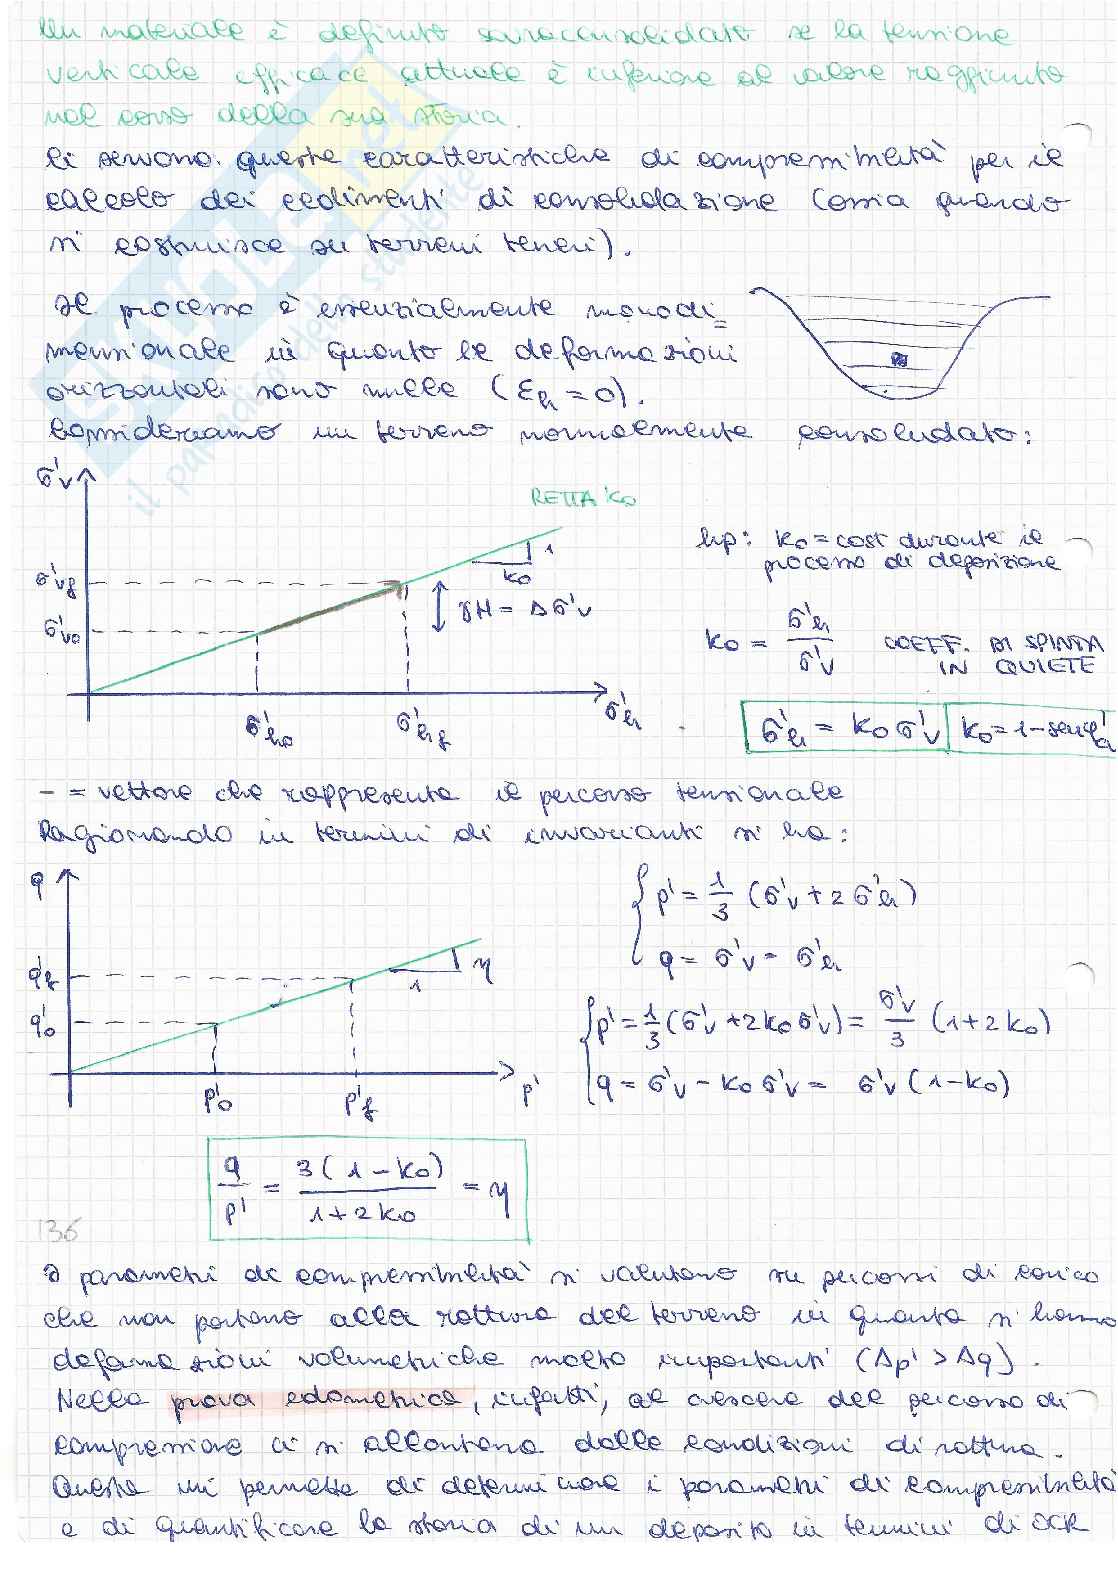 Un materiale è definito sovraconsolidato se la tensione
verticale efficace attuale è inferiore al valore raggiunto
nel corso della sua storia.
Ci servono queste caratteristiche di compressibilità per il
calcolo dei cedimenti di consolidazione (ossia quando
si costruisce su terreni teneri).
Il processo è essenzialmente monodi=
mensionale in quanto le deformazioni
orizzontali sono nulle (εh = 0).
Consideriamo un terreno normalmente consolidato:
σ'v
RETTA K0
σ'vf
σ'v0
1
K0
γH = Δσ'v
σ'h0
σ'hf
σ'h
hp: K0 = cost durante il
processo di deposizione
K0 = σ'h / σ'v COEFF. DI SPINTA
IN QUIETE
σ'h = K0 σ'v
K0 = 1 - senφ'a
– = vettore che rappresenta il percorso tensionale
Ragionando in termini di invarianti si ha:
q
q'f
q'0
1
η
p'0
p'f
p'
p' = 1/3 (σ'v + 2σ'h)
q = σ'v - σ'h
p' = 1/3 (σ'v + 2K0 σ'v) = σ'v/3 (1 + 2K0)
q = σ'v - K0 σ'v = σ'v (1 - K0)
q/p' = 3(1 - K0) / 1 + 2K0 = η
136
I parametri di compressibilità si valutano su percorsi di carico
che non portano alla rottura del terreno in quanto si hanno
deformazioni volumetriche molto importanti (Δp' > Δq).
Nella prova edometrica, infatti, al crescere del percorso di
compressione ci si allontana dalle condizioni di rottura.
Questa mi permette di determinare i parametri di compressibilità
e di quantificare la storia di un deposito in termini di OCR